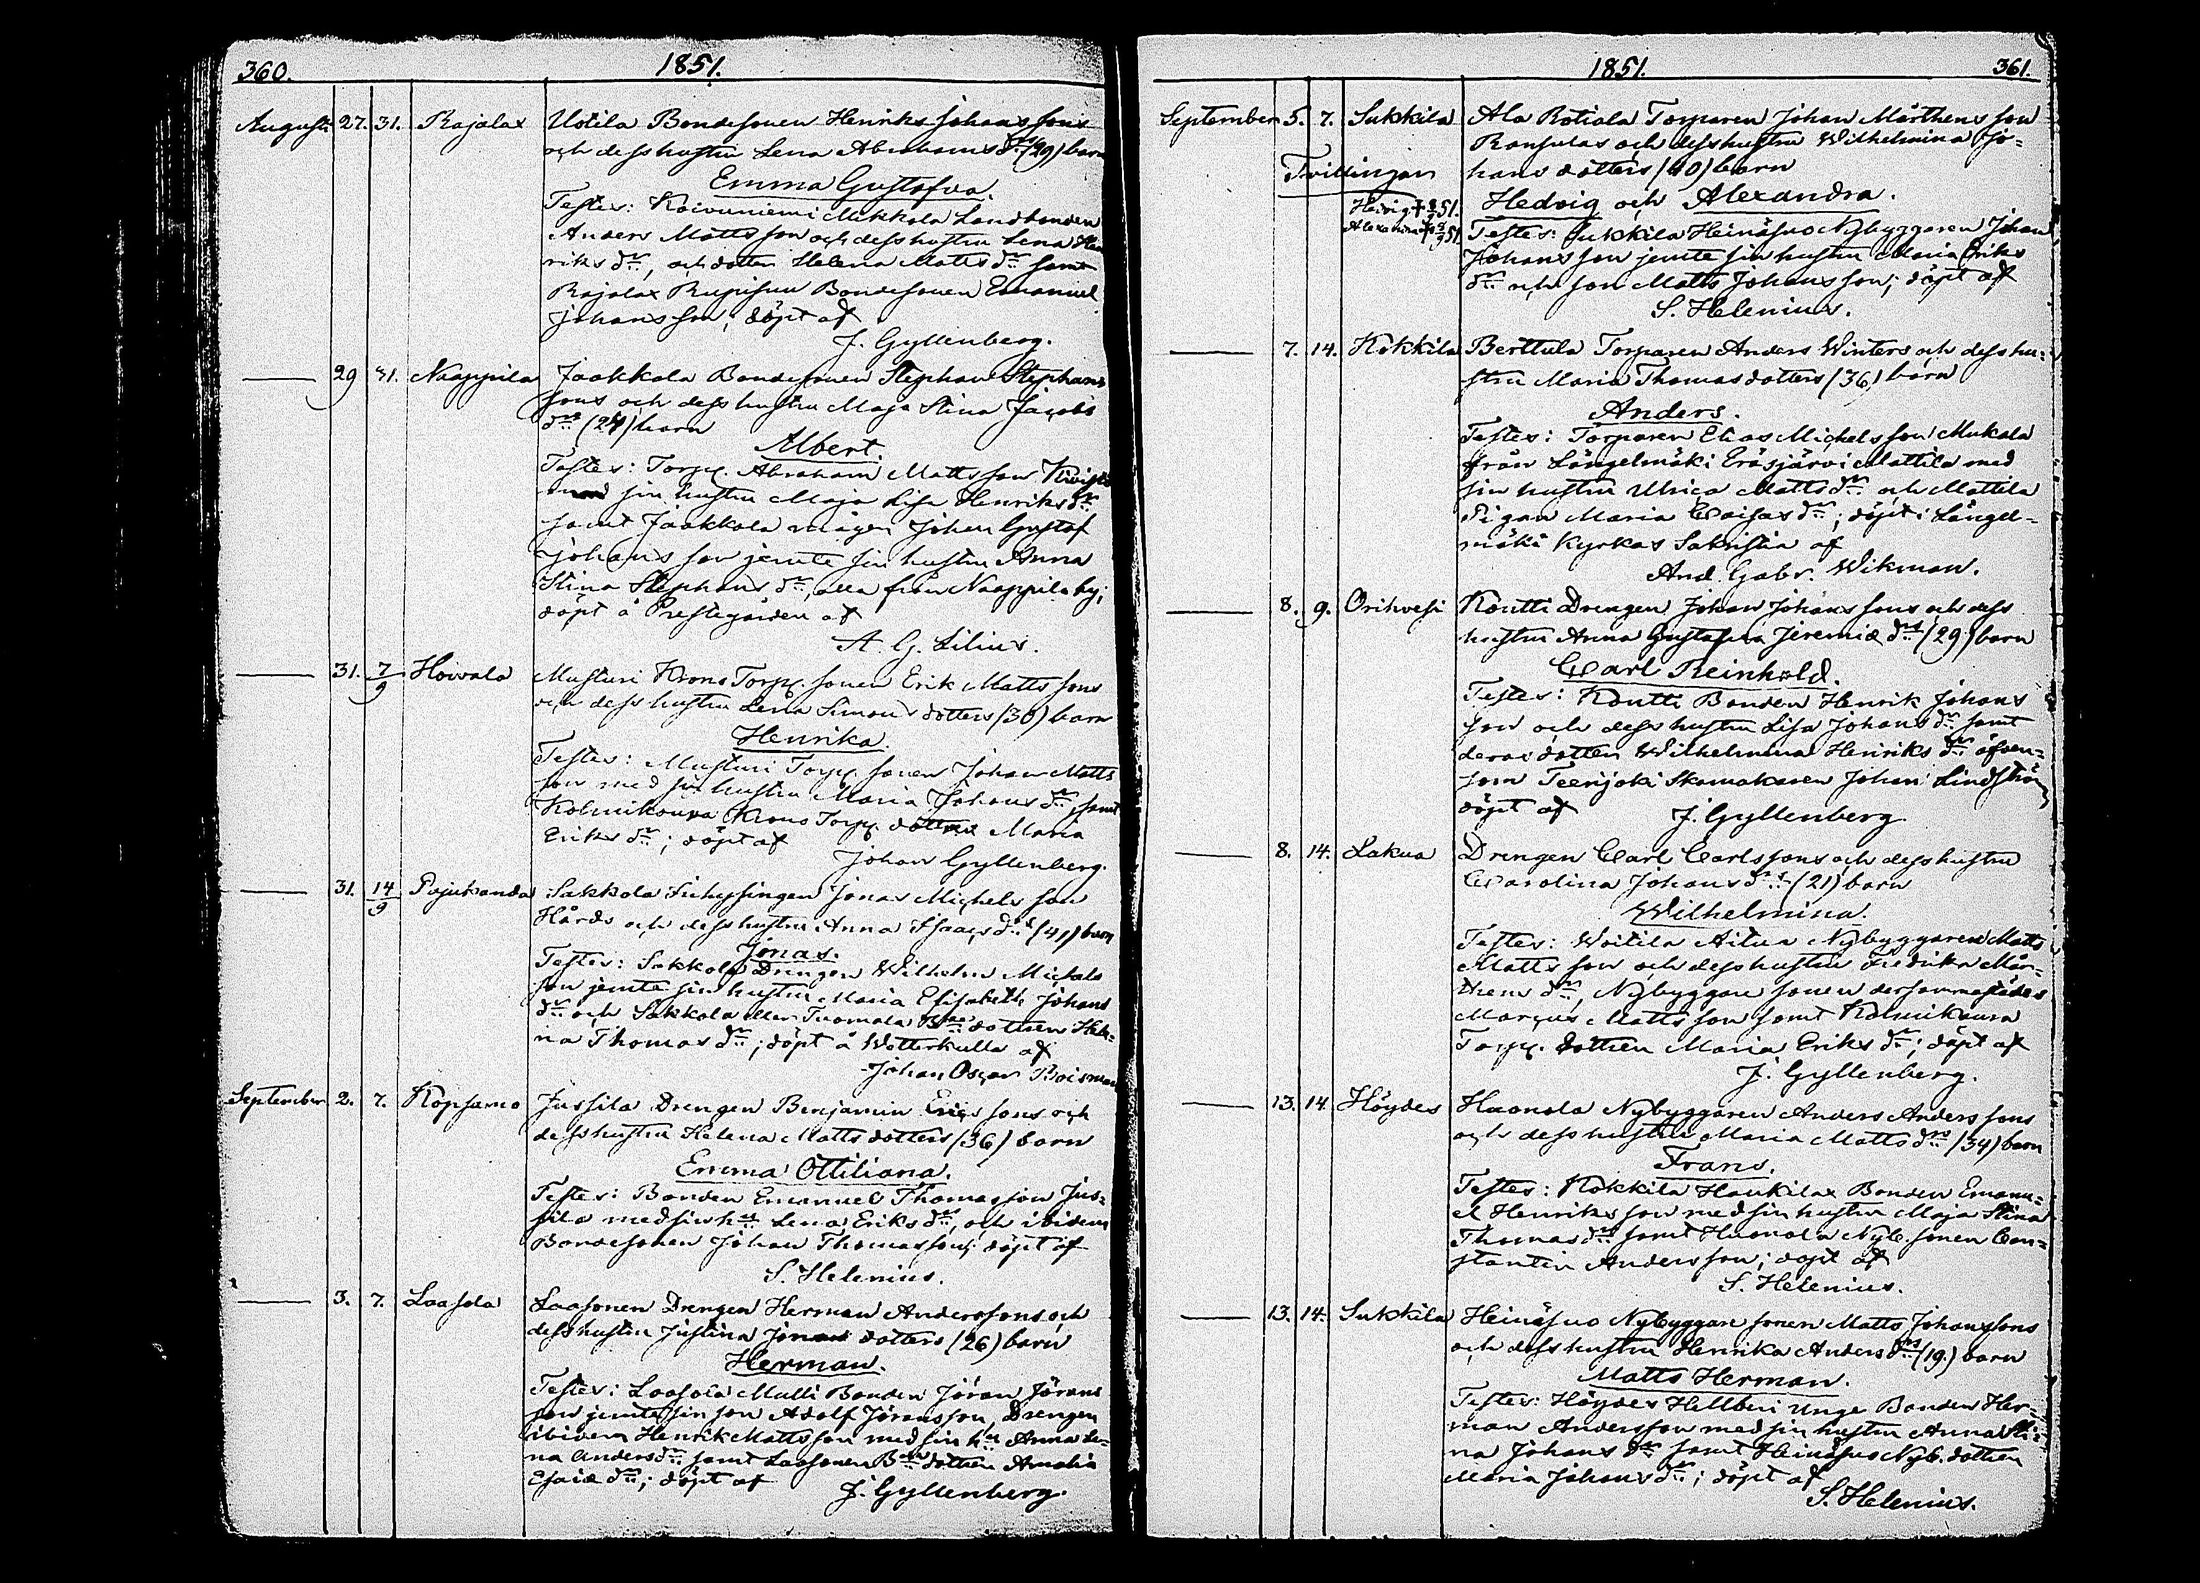 360.
1851.
Augusti 27. 31. Rajalax Uotila Bondesonen Henriks Johans sons
och dess hustru Lena Abrahams dr (29) barn
Emma Gustafva.
Testes: Koivuniemi Mikkola Landbonden
Anders Matts son och dess hustru Lena Hen
riks dr, och dotter Helena Matts dr samt
Rajalax Bondesonen Emanuel
Johans son; döpt af
J. Gyllenberg.
29 31. Naappila Jaakkola Bondesonen Stephan Stephans
sons och dess hustru Maja Stina Jacobs
drs (24) barn
Albert.
Testes: Torp. Abraham Matts son
med sin hustru Maja Lisa Henriks dr
samt Jaakkola mågen Johan Gustaf
Johans son jemte sin hustru Anna
Stina Stephans dr, alla från Naappila by;
döpt å Prestegården af
A. G. Lilius.
31. 7/9 Hoivala Musturi Krono Torp. sonen Erik Matts sons
och dess hustru Lena Simons dotters (30) barn
Henrika.
Testes: Musturi Torp. sonen Johan Matts
son med sin hustru Maria Johans dr samt
Kolunikoura Krono Torp. dottren Maria
Eriks dr; döpt af
Johan Gyllenberg.
31. 14/9 Pajukanda Sakkola Inhysingen Jonas Michels son
Hårds och dess hustru Anna Isaacs drs (41) barn
Jonas.
Testes: Sakkola Drengen Wilhelm Michels
son jemte sin hustru Maria Elisabeth Johans
dr och Sakkola eller Tuomala Bde dottren Hele=
na Thomas dr; döpt å Wotterkulla af
Johan Oscar Roisman
September 2. 7. Kopsamo Jussila Drengen Benjamin Erics sons och
dess hustru Helena Matts dotters (36) barn
Emma Ottiliana.
Testes: Bonden Emanuel Thomasson Jus=
sila med sin hu Lena Eriks dr, och ibidem
Bondesonen Johan Thomasson; döpt af
S. Helenius.
3. 7. Laasola Laasonen Drengen Herman Anderssons och
dess hustru Justina Jonas dotters (26) barn
Herman.
Testes: Laasola Malli Bonden Jöran Jörans
son jemte sin son Adolf Jöransson, Drengen
ibidem Henrik Matts son med sin hu Anna Le=
na Anders dr samt Laasonen Bde dottren Amalia
Esaiæ dr; döpt af
J. Gyllenberg.
1851.
361.
September 5. 7. Sukkila Ala Rotiala Torparen Johan Mårthens son
Ronsulas och dess hustru Wilhelmina Jo=
Tvillingar hans dotters (40) barn
Hedvig och Alexandra.
Testes: Sukkila Heinäsuo Nybyggaren Johan
Johans son jemte sin hustru Maria Eriks
dr och son Matts Johans son; döpt af
S. Helenius.
7. 14. Kokkila Berttula Torparen Anders Winters och dess hu=
stru Maria Thomas dotters (36) barn
Anders.
Testes: Torparen Elias Michels son Mukala
från Längelmäki Eräsjärvi Mattila med
sin hustru Ulrica Matts dr och Mattila
Pigan Maria Caisas dr; döpt i Längel=
mäki Kyrkas Sakristia af
And. Gabr. Wikman.
8. 9. Orihvesi Koutti Drengen Johan Johans sons och dess
hustru Anna Gustafva Jeremiæ drs (29) barn
Carl Reinhold.
Testes: Koutti Bonden Henrik Johans
son och dess hustru Lisa Johans dr samt
deras dotter Wilhelmina Henriks dr äfven=
som Teerijoki Skomakaren Johan Lindström
döpt af
J. Gyllenberg
8. 14. Lakua Drengen Carl Carls sons och dess hustru
Carolina Johans drs (21) barn
Wilhelmina.
Testes: Woitila Aitua Nybyggaren Matts
Matts son och dess hustru Fredrika Mår=
thens dr, Nybyggare sonen dersammastädes
Marcus Matts son samt Kolunikoura
Torp. dottren Maria Eriks dr; döpt af
J. Gyllenberg.
13. 14. Höydes Haanola Nybyggaren Anders Anders sons
och dess hustru Maria Matts drs (34) barn
Frans.
Testes: Kokkila Haukilax Bonden Emanu=
el Henriks son med sin hustru Maja Stina
Thomas dr samt Haanola Nyb. sonen Con=
stantin Andersson; döpt af
S. Helenius.
13. 14. Sukkila Heinäsuo Nybyggare sonen Matts Johans sons
och dess hustru Henrika Anders drs (19.) barn
Matts Herman.
Testes: Höydes Hellberi unge Bonden Her=
man Andersson med sin hustru Anna Sti=
na Johans dr samt Heinäsuo Nyb. dottren
Maria Johans dr; döpt af
S. Helenius.